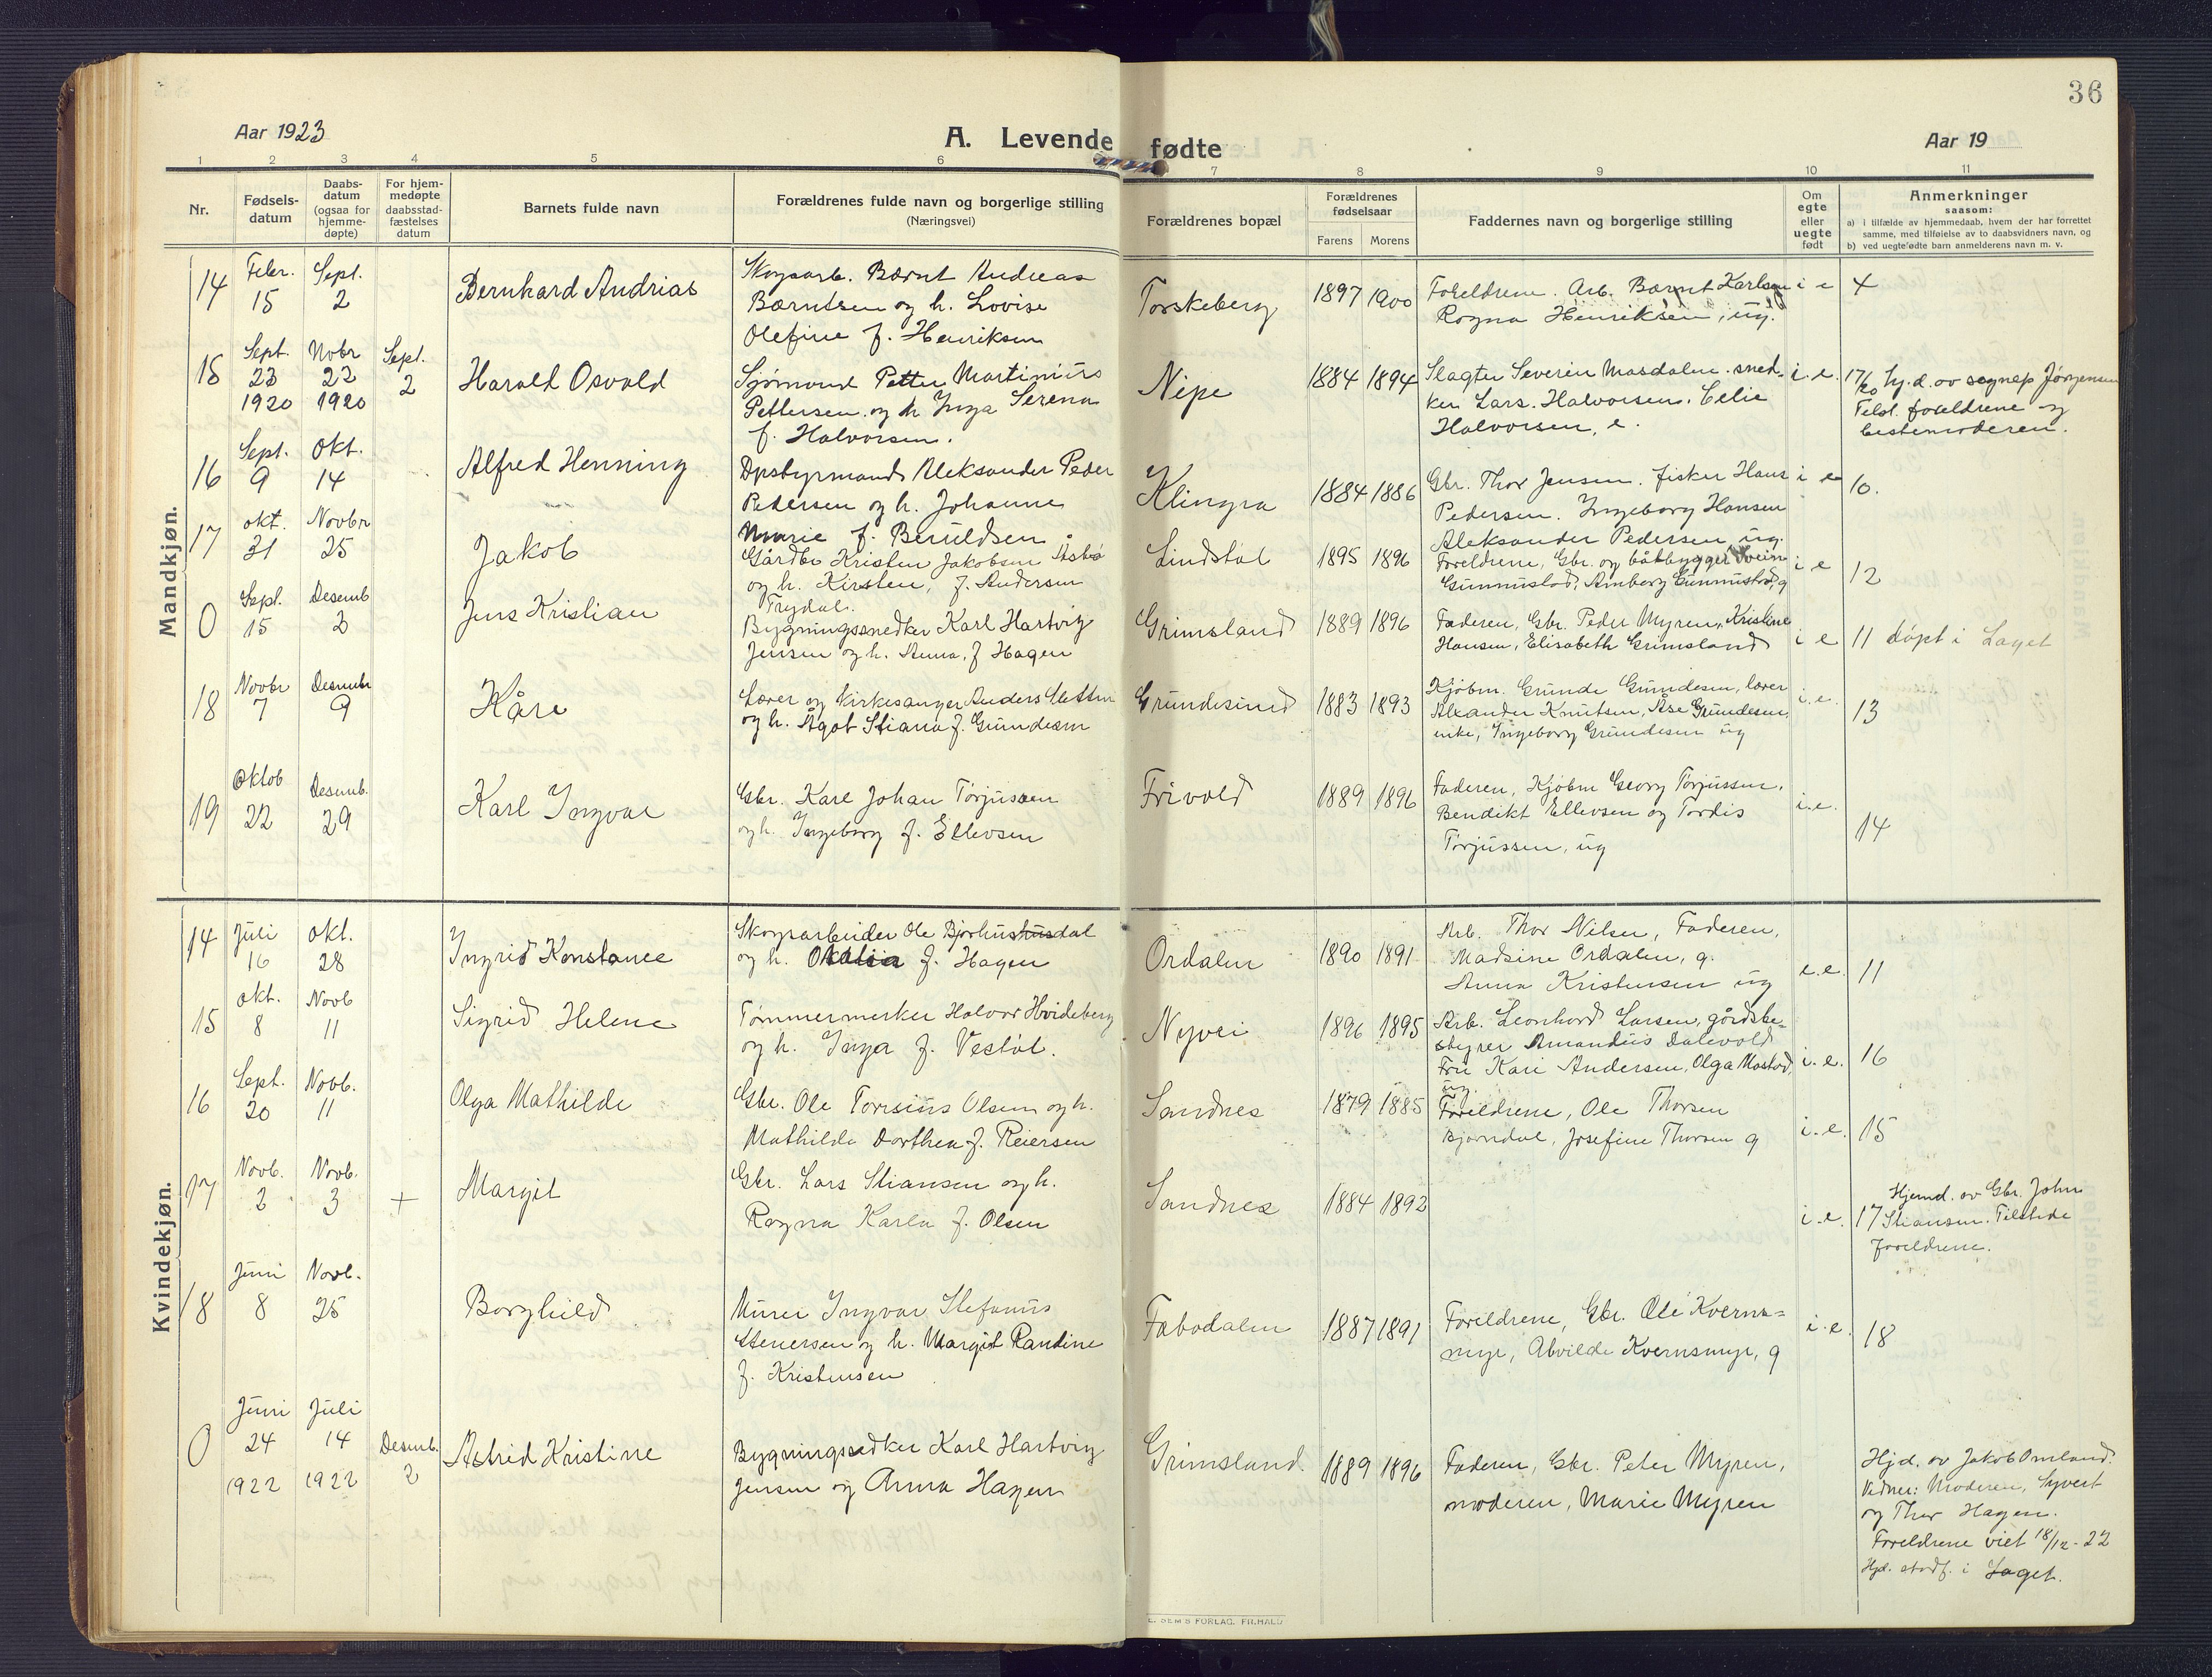 36
Aar 1923
A. Levende fødte
Aar 19
1 2 3 4 5 6 7 8 9 10 11
Nr.
Fødsels-
datum
Daabs-
datum
(ogsaa for
hjemme-
døpte)
For hjem-
medøpte
daabsstad-
fæstelses
datum
Barnets fulde navn
Forældrenes fulde navn og borgerlige stilling
(Næringsvei)
Forældrenes bopæl
Forældrenes
fødselsaar
Farens Morens
Faddernes navn og borgerlige stilling
Om
egte
eller
uegte
født
Anmerkninger
saasom:
a) i tilfælde av hjemmedaab, hvem der har forrettet
samme, med tilføielse av to daabsvidners navn, og
b) ved uegtefødte barn anmelderens navn m. v.
Mandkjøn.
14
Febr.
15
Sept.
2
Bernhard Andrias
Skogsarb. Bærnt Andreas
Bærntsen og h. Lovise
Olefine f. Henriksen
Torskeberg
1897 1900
Foreldrene. Arb. Bærnt Karlsen
Ragna Henriksen, ug.
i e
4
15
Sept.
23
1920
Nobr
22
1920
Sept.
2
Harald Osvald
Sjømand Petter Martinius
Pettersen og h Inga Serena
f. Halvorsen.
Nipe
1884 1894
Slagter Severin Masdalen. sned-
ker Lars. Halvorsen. Celie
Halvorsen, e.
i. e.
17/20 hj.d. av sognep Jørgensen
Telst. foreldrene og
bestemoderen.
16
Sept.
9
Okt.
14
Alfred Henning
Opstyrmand Aleksander Peder
Pedersen og h. Johanne
Marie f. Beruldsen
Klingra
1884 1886
Gbr. Thor Jensen. fisker Hans
Pedersen. Ingeborg Hansen
Aleksander Pedersen ug.
i e
10.
17
okt.
31
Novbr
25
Jakob
Gårdbr Kristen Jakobsen
og h. Kirsten, f. Andersen
Trydal.
Lindstøl
1895 1896
Foreldrene, Gbr. og båtbygger Svein
Gunnustad, Amborg Gunnustad, g
i e
12
0
Sept.
15
Desemb
2
Jens Kristian
Bygningssnedker Karl Hartvig
Jensen og h. Anna, f Hagen
Grimsland
1889 1896
Faderen, Gbr. Peder Myren, Kristine
Hansen, Elisabeth Grimsland
i e
11 døpt i Laget
18
Novbr
7
Desembr
9
Kåre
Lærer og kirkesanger Anders Sletten
og h. Ågot Stiana f. Gundesen
Grundesund
1883 1893
Kjøbm. Grunde Gundesen, lærer
Alexander Knutsen, Åse Gundesen,
enke, Ingeborg Grundesen ug
i. e.
13
19
Oktob
22
Desemb.
29
Karl Ingvar
Gbr. Karl Johan Torjussen
og h. Ingeborg f. Ellevsen
Frivold
1889 1896
Faderen, Kjøbm Georg Torjussen,
Bendikt Ellevsen og Tordis
Torjussen, ug
i. e.
14
Kvindekjøn.
14
Juli
16
Okt.
28
Ingrid Konstance
Skogsarbeider Ole Bjorhushusdal
og h. f. Hagen
Ordalen
1890 1891
Arb. Thor Nilsen, Faderen,
Madsine Ordalen, g.
Anna Kristensen ug
e.e.
11
15
Okt.
8
Novb
11
Sigrid Helene
Tømmermerker Halvor Hvideberg
og h. Inga f. Vestøl.
Nyvei
1896 1895
Arb. Leonhard Larsen, gårdsbe-
styrer Amandus Dalevold
Fru Kari Andersen, Olga Mostad,
ug.
i. e.
16
16
Sept.
20
Novb.
11
Olga Mathilde
Gbr. Ole Torrsius Olsen og h.
Mathilde Dorthea f. Reiersen
Sandnes
1879 1885
Foreldrene, Ole Thorsen
Bjørndal, Josefine Thorsen g
i. e.
15
17
Novb.
2
Novb.
3
+
Margit
Gbr. Lars Stiansen og h.
Ragna Karla f. Olsen
Sandnes
1884 1892
i. e.
17 Hjemd. av Gbr. John
Stiansen. Tilstede
foreldrene.
18
Juni
8
Novb.
25
Borghild
Murer Ingvar Stefanus
Stenersen og h. Margit Randine
f. Kristensen
Fabodalen
1887 1891
Foreldrene, Gbr. Ole Kverns-
myr, Abvilde Kvernsmyr, g
i. e.
18
0
Juni
24
1922
Juli
14
1922
Desemb.
2
Astrid Kristine
Bygningssedker Karl Hartvig
Jensen og Anna Hagen
Grimsland.
1889 1896
Faderen, Gbr. Peter Myren,
moderen, Marie Myren
Hjd. av Jakob Omland.
Vidner: Moderen, Syvert
og Thor Hagen.
Foreldrene viet 18/12-22
Hjd. stadf. i Laget.
E. SEM'S FORLAG, FR.HALD